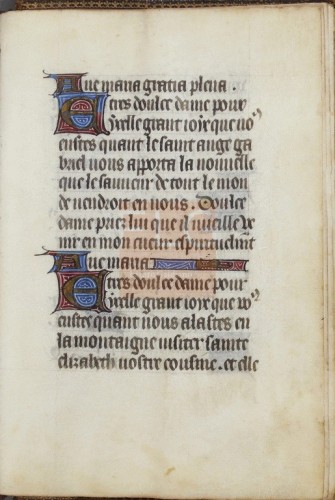 Aue maria gratia plena .
E tres doulce dame pour
ycelle grant ioye que vo⁹
eustes quant le saint ange ga
briel vous apporta la nouuelle
que le sauueur de tout le mon
de vendroit en vous . Doulce
dame priez lui que il vueille ve
nir en mon cueur espirituelmt
Aue maria
E tres doulce dame pour
ycelle grant ioye que vo⁹
eustes quant vous alastes en
la montaigne visiter sainte
elizabeth vostre cousine . et elle